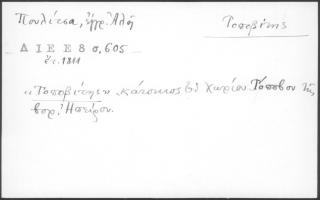 Πουλίτσα, ἐγγρ. Ἀλῆ
Τοποβίτης
Δ Ι Ε Ε 8 σ. 605
ἔτ. 1811
"Τοποβίτης" κάτοικος τοῦ χωρίου Τόποβον τῆς
βορ. Ἠπείρου.